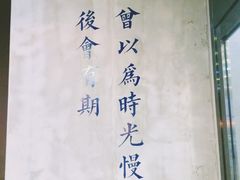 曾以為時光慢
後會有期